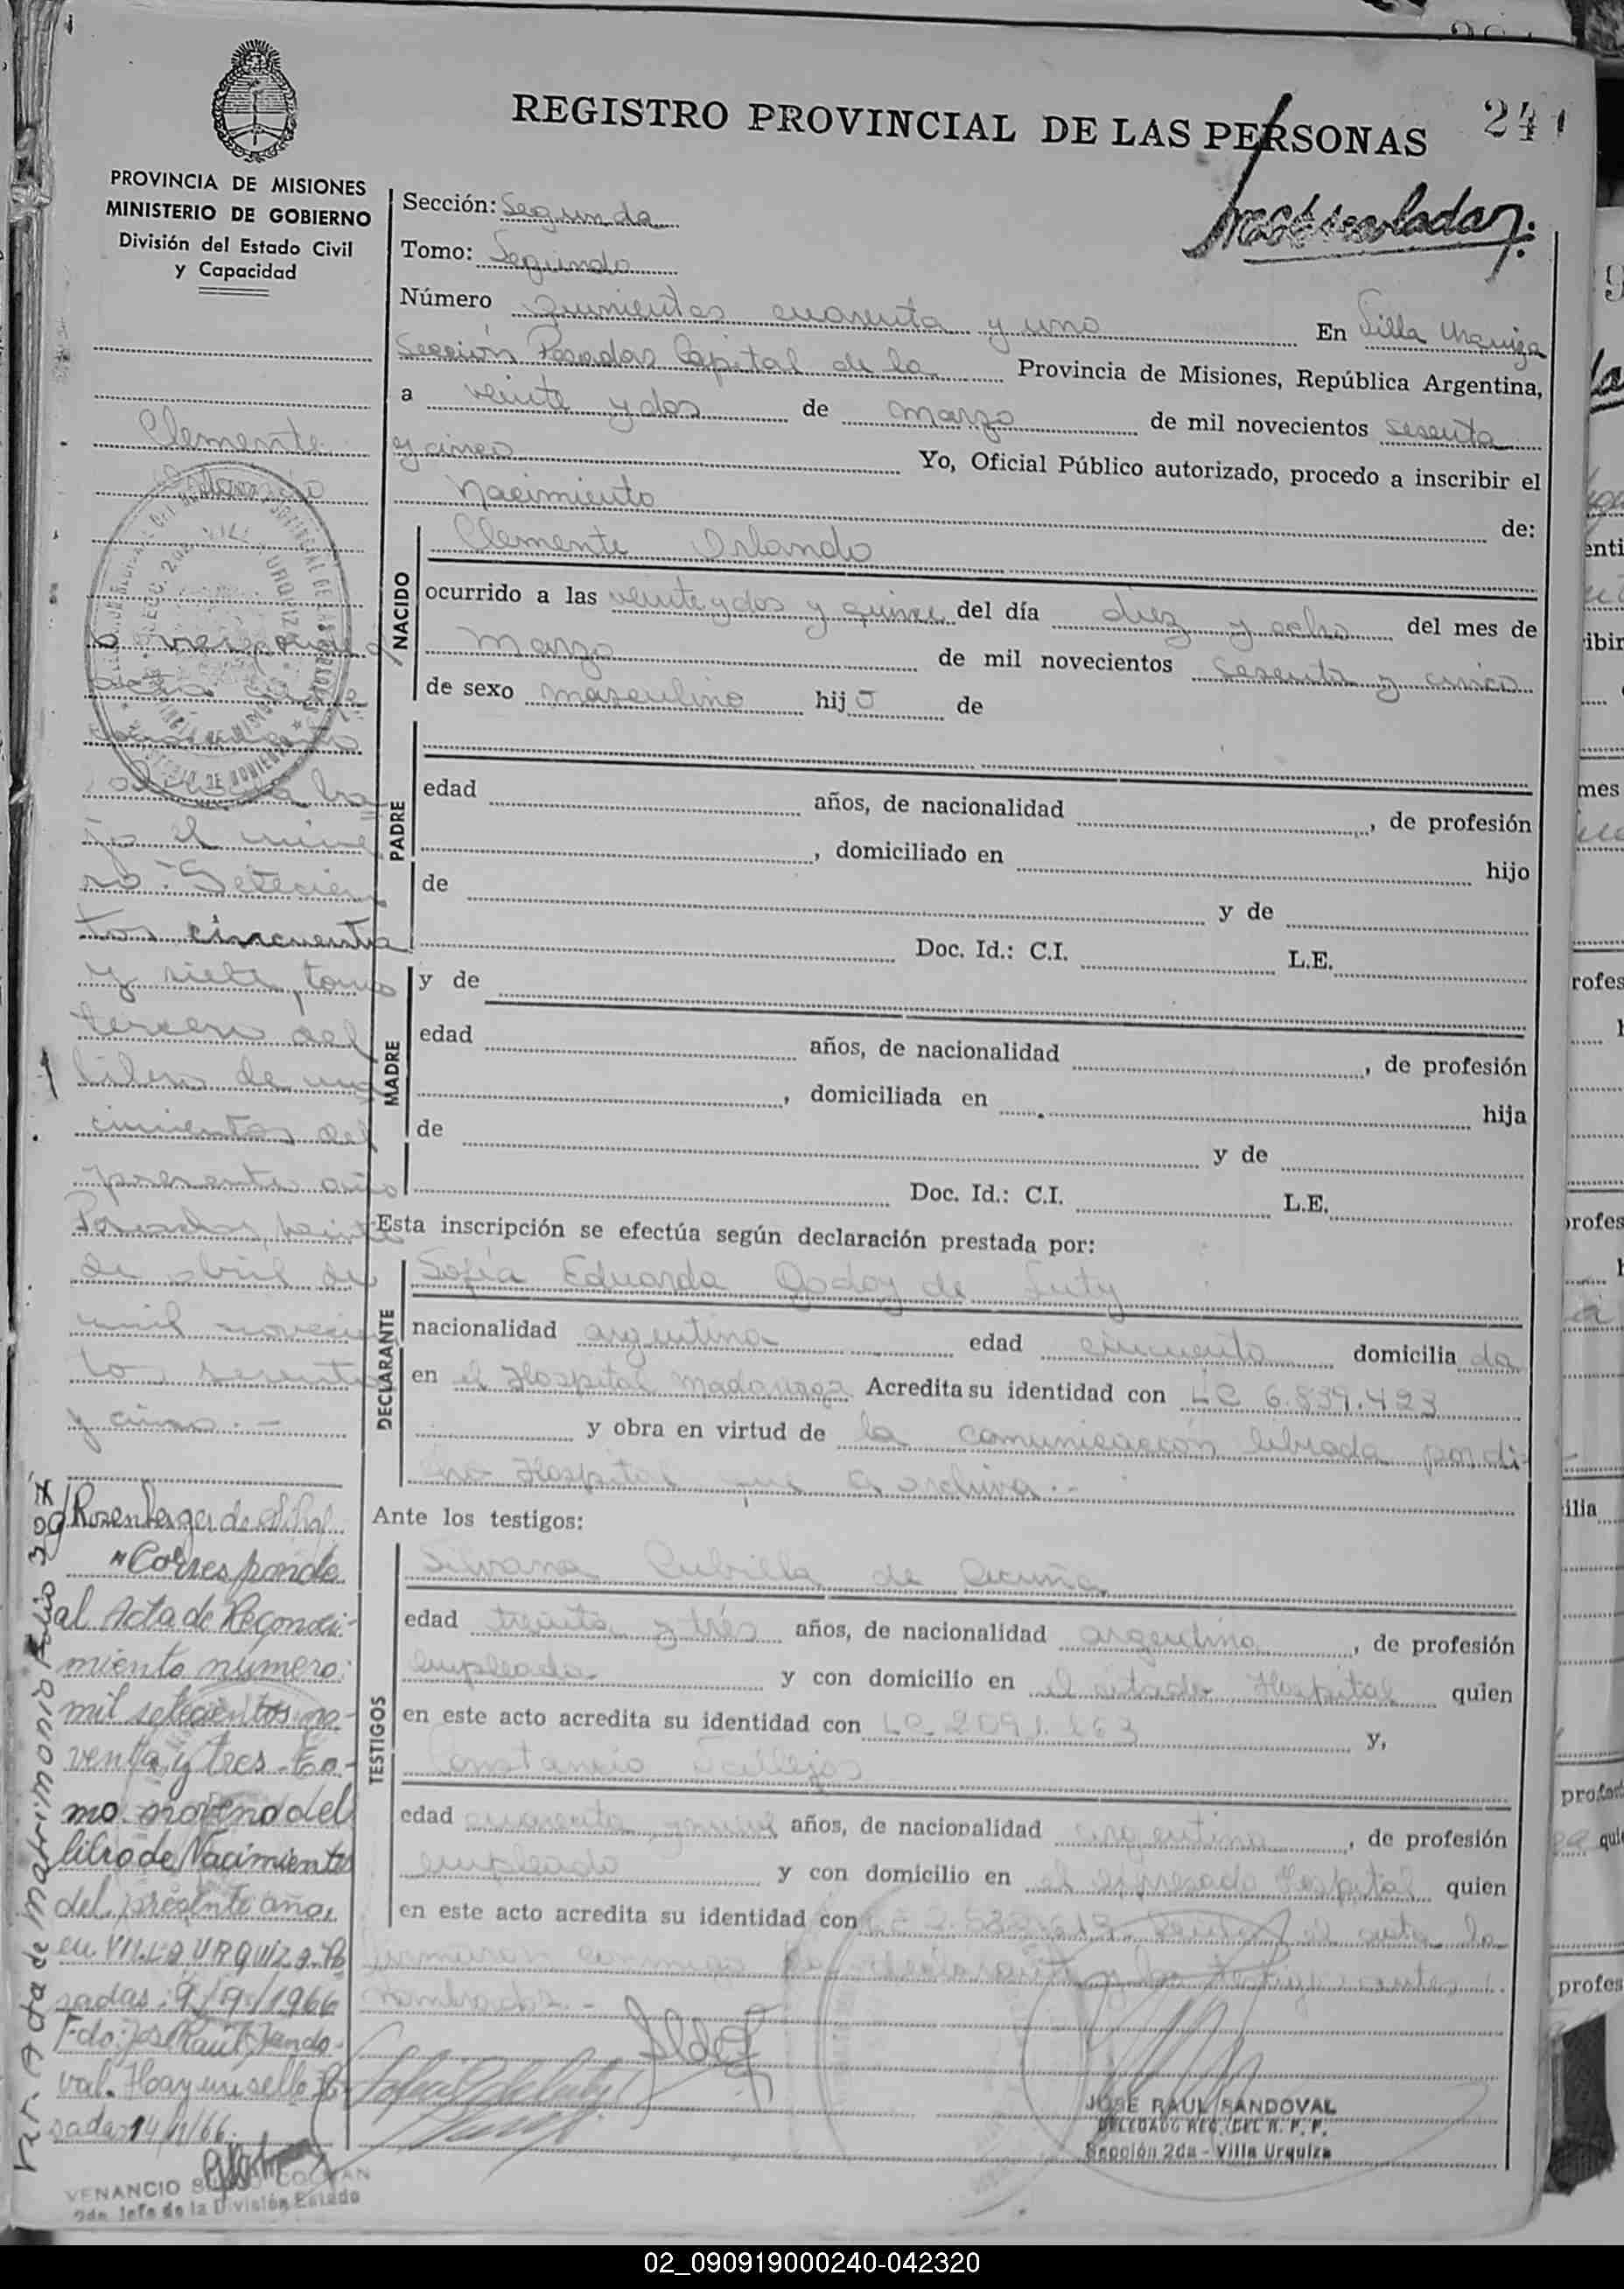 REGISTRO PROVINCIAL DE LAS PERSONAS
241
PROVINCIA DE MISIONES
MINISTERIO DE GOBIERNO
División del Estado Civil
y Capacidad
Sección: Segunda
Tomo: Segundo
Número quinientos cuarenta y uno En Villa Urquiza
Sección Posadas Capital de la Provincia de Misiones, República Argentina,
a veinte y dos de marzo de mil novecientos sesenta
y cinco Yo, Oficial Público autorizado, procedo a inscribir el
Nacimiento de:
NACIDO
Clemente Orlando
ocurrido a las veinte y dos y quince del día diez y ocho del mes de
marzo de mil novecientos sesenta y cinco
de sexo masculino hijo de
PADRE
edad años, de nacionalidad , de profesión
, domiciliado en hijo
de y de
Doc. Id.: C.I. L.E.
MADRE
y de
edad años, de nacionalidad , de profesión
, domiciliada en hija
de y de
Doc. Id.: C.I. L.E.
Esta inscripción se efectúa según declaración prestada por:
DECLARANTE
Sofía Eduarda Godoy de
nacionalidad argentina edad cincuenta domiciliada
en el Hospital Madariaga Acredita su identidad con LC 6.839.423
y obra en virtud de la comunicación librada por di-
cho Hospital que se archiva.-
Ante los testigos:
TESTIGOS
Silvana Cubilla de Acuña
edad treinta y trés años, de nacionalidad argentina, de profesión
empleada y con domicilio en el citado Hospital quien
en este acto acredita su identidad con LC 2091.163 y,
Constancio Vallejos
edad cuarenta y nueve años, de nacionalidad argentina, de profesión
empleado y con domicilio en el expresado Hospital quien
en este acto acredita su identidad con
firmaron conmigo
nombrados.-
JOSE RAUL SANDOVAL
DELEGADO REG. DEL R. P. P.
Sección 2da - Villa Urquiza
Clemente
Orlando
bajo el núme-
ro - Setecien
tos cincuenta
y siete, tomo
tercero del
libro de na
cimientos del
presente año
Posadas, veinte
de abril de
mil novecien
tos sesenta
y cinco.-
Corresponde
al Acta de Reconoci-
miento número
mil setecientos no-
venta y tres - to-
mo noveno del
libro de Nacimientos
del presente año,
en VILLA URQUIZA-Po
sadas, 9/9/1966
Fdo: José Raúl Sando-
val. Hay un sello. Po-
sadas
VENANCIO
2do. Jefe de la División Estado
Vr. Acta de Matrimonio Folio
02_090919000240-042320